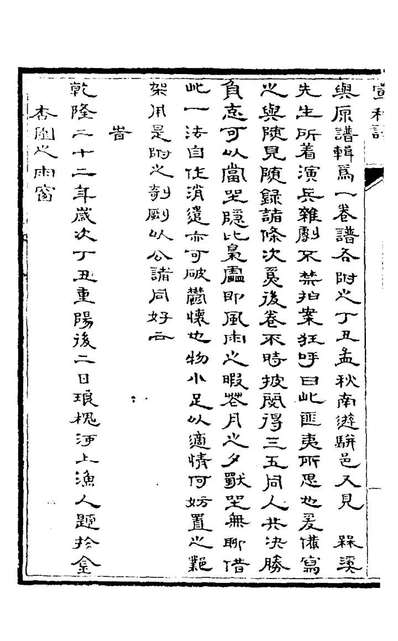 宣和譜
與原譜輯為一卷譜各附之丁丑孟秋南遊駢邑又見 槑溪
先生所着演兵雜劇不禁拍案狂呼曰此匪夷所思也爰備寫
之與陝見隨録諸條次後卷不時披閱得三五同人共決勝
負可以當坐隱比梟盧即風雨之暇花月之夕獸坐無聊借
此一法自住消遣亦可破鬱懷也物小足以適情何妨置之鄴
架用是附之剞劂以公諸同好云
旹
乾隆二十二年歲次丁丑重陽後二日琅槐河上漁人題於金
杏園之雨窗